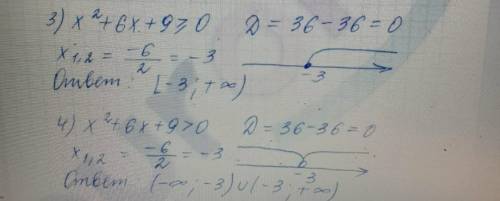 3) x² + 6x + 9 ≥ 0 D = 36 - 36 = 0
x₁,₂ = -6/2 = -3
-3
Ответ: [-3; +∞)
4) x² + 6x + 9 > 0 D = 36 - 36 = 0
x₁,₂ = -6/2 = -3
-3
Ответ (-∞; -3) ∪ (-3; +∞)